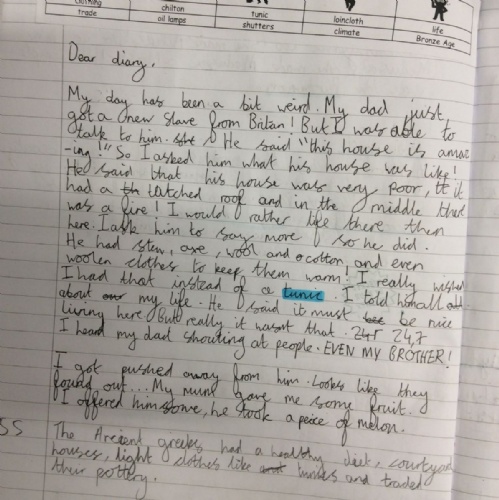 clothing chiton tunic loincloth life
trade oil lamps shutters climate Bronze Age
Dear diary,
My day has been a bit weird. My dad just
got a new slave from Britan! But I was able to
talk to him. He said "this house is amaz
-ing!" So I asked him what his house was like!
He said that his house was very poor, it
had a thatched roof and in the middle there
was a fire! I would rather life there then
here. I ask him to say more so he did.
He had stew, wool and cotton and even
woolen clothes to keep them warm! I really wished
I had that instead of a tunic. I told him all
about my life. He said it must be nice
living here. But really it wasnt that. 24,7
I heard my dad shouting at people. EVEN MY BROTHER!
I got pushed away from him. Looks like they
found out... My mum gave me some fruit.
I offered him some, he took a peice of melon.
SS The Ancient greeks had a healthy diet, courtyard
houses, light clothes like tunics and traded
their pottery.